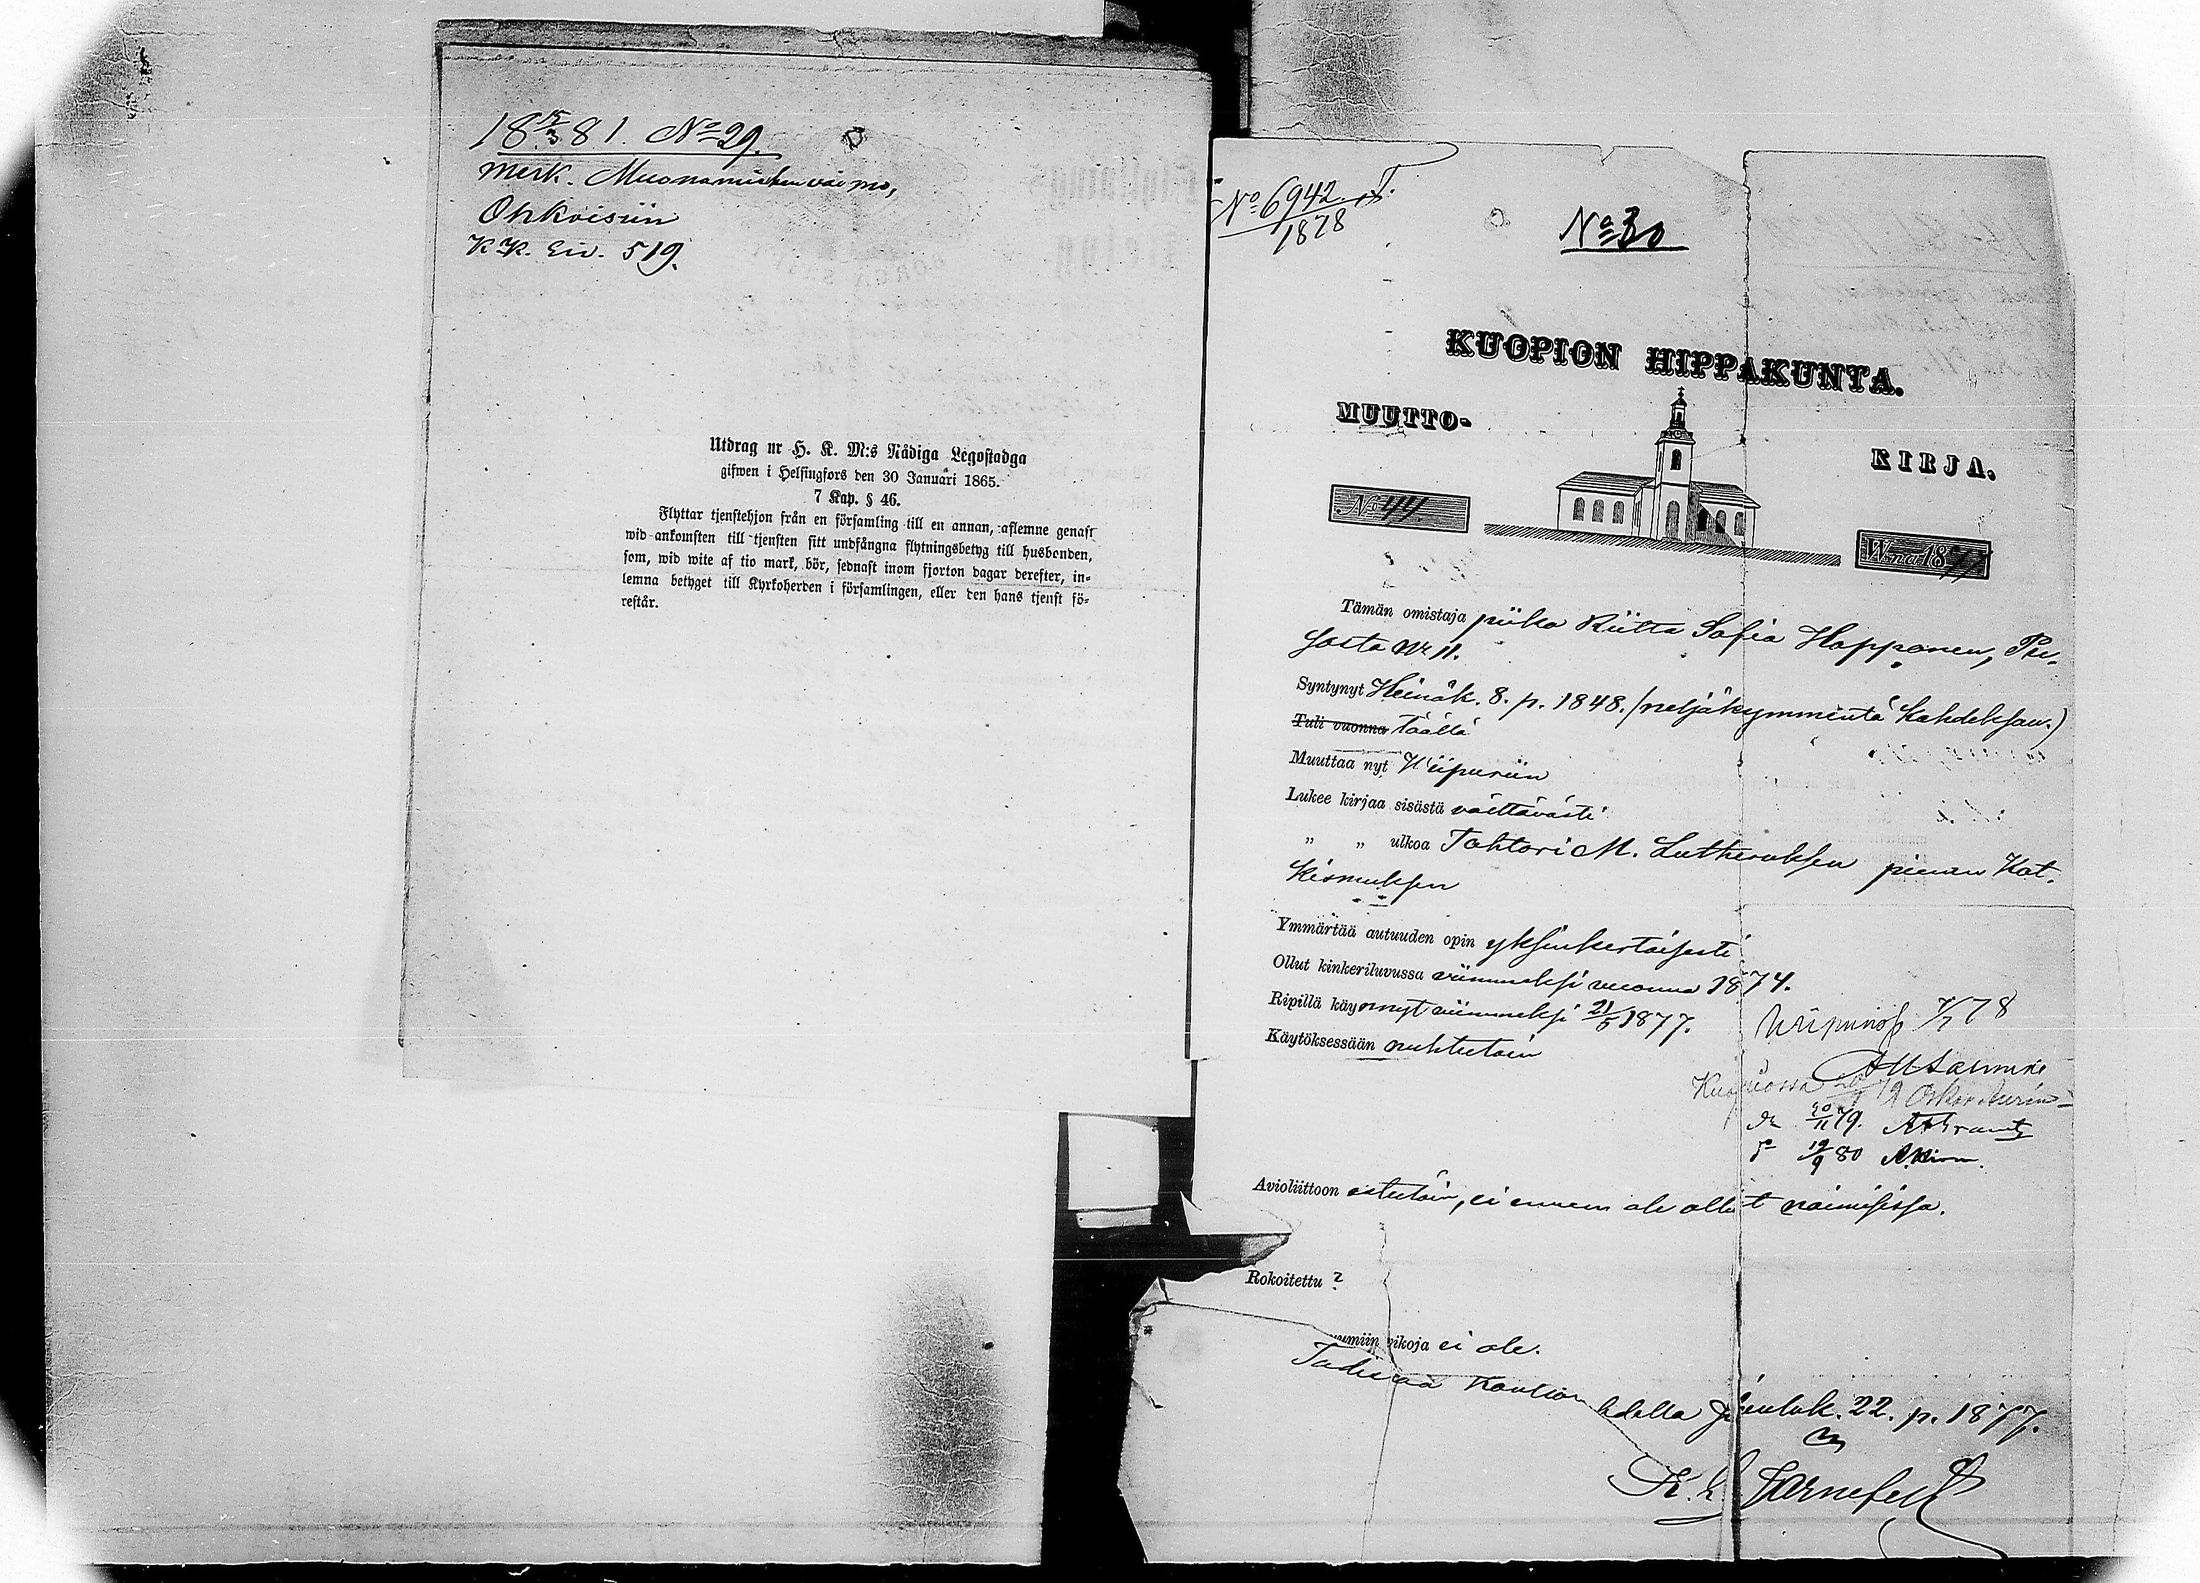 18 15/3 81. No 29.
merk. Muonamiehen vaimo,
Ohkoisiin
K.K. Siv. 519.
Utdrag ur H. K. M:s Nådiga Legostadga
gifwen i Helsingfors den 30 Januari 1865.
7 Kap. § 46.
Flyttar tjenstehjon från en församling till en annan, aflemne genast
wid ankomsten till tjensten sitt undfångna flytningsbetyg till husbonden,
som, wid wite af tio mark, bör, sednast inom fjorton dagar derefter, in-
lemna betyget till Kyrkoherden i församlingen, eller den hans tjenst fö-
restår.
No 6942
1878
No 30
KUOPION HIPPAKUNTA.
MUUTTO-
KIRJA.
No 44.
W:na 1877
Tämän omistaja piika Riitta Sofia Happonen,
Nr 11.
Syntynyt Heinäk. 8. p. 1848. (neljäkymmentä kahdeksan.)
Tuli vuonna täällä
Muuttaa nyt Wiipuriin
Lukee kirjaa sisästä välttävästi
„ „ ulkoa Tohtori M. Lutheruksen pienen Kat-
kismuksen
Ymmärtää autuuden opin yksinkertaisesti
Ollut kinkeriluvussa viimmeksi vuonna 1874.
Ripillä käynnyt viimmeksi 21/5 1877.
Käytöksessään nuhteetoin
78
Kuopiossa
20/11 79.
19/9 80
Avioliittoon esteetöin, ei ennen ole ollut naimisissa.
Rokoitettu ?
vikoja ei ole.
Todistaa
Jouluk. 22. p. 1877.
K. E. Järnefelt